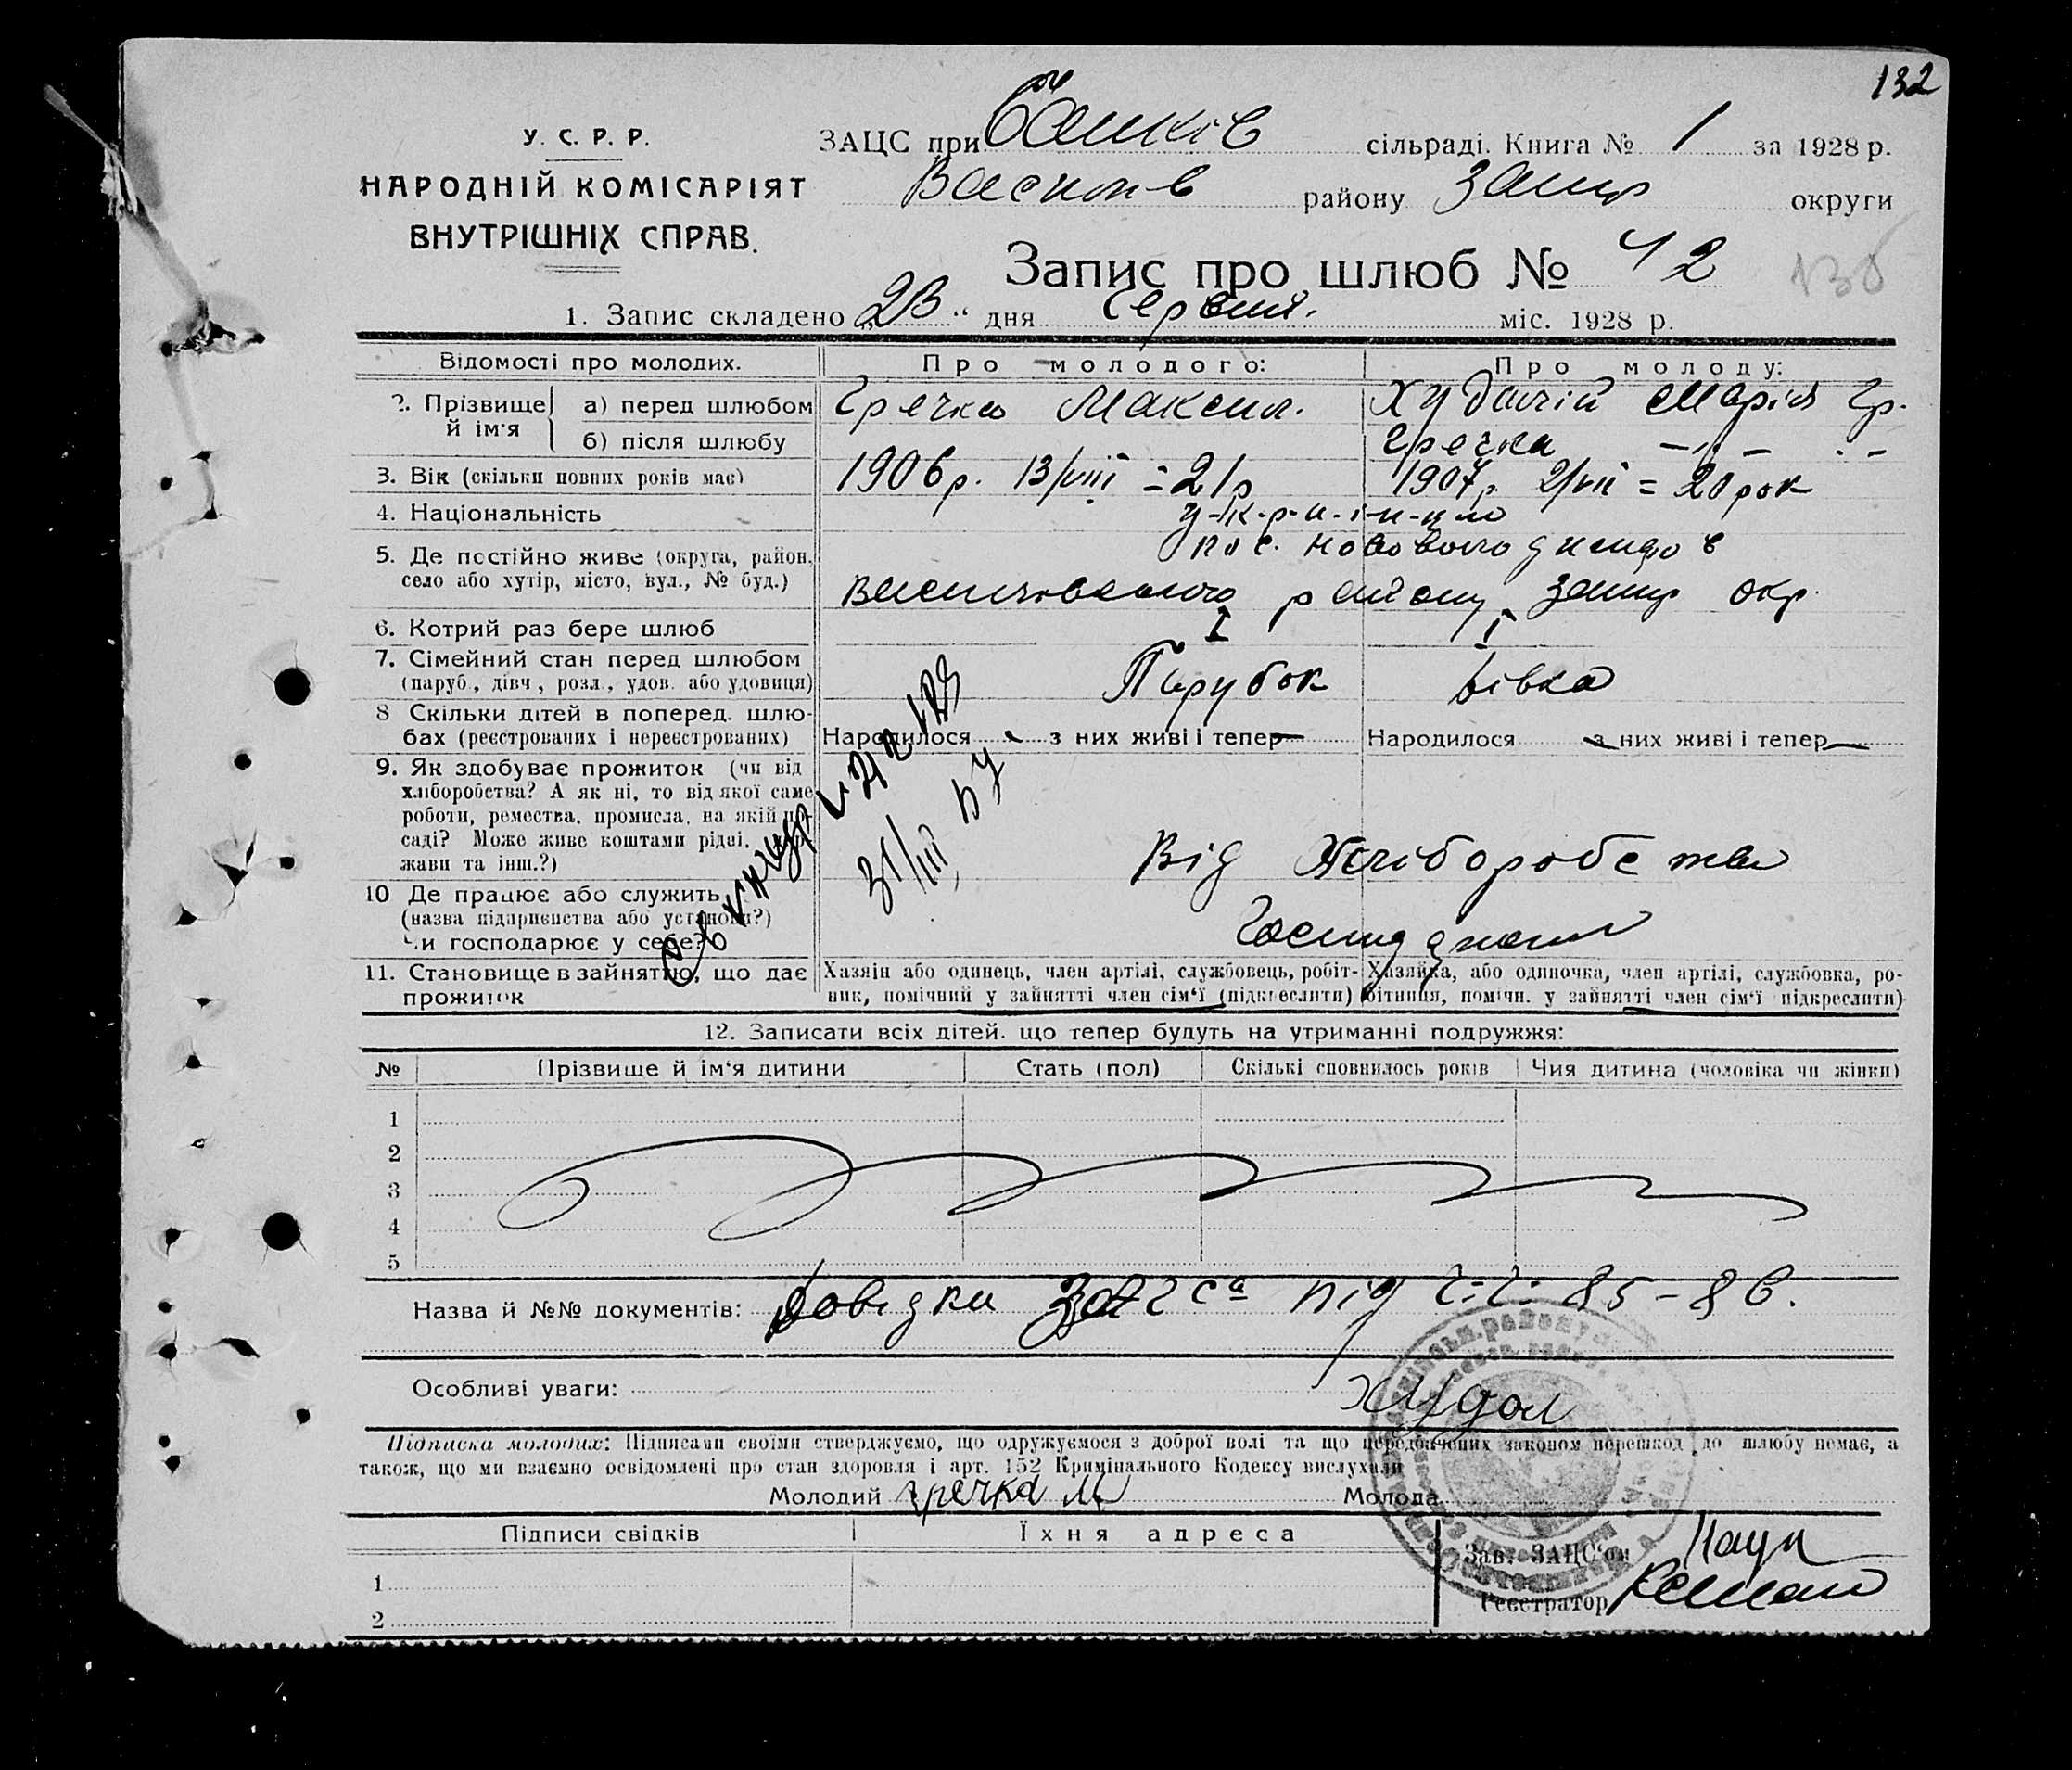 132
У. С. Р. Р.
НАРОДНІЙ КОМІСАРІЯТ
ВНУТРІШНІХ СПРАВ.
ЗАЦС при сільраді. Книга № 1 за 1928 р.
Васил-в району Запор округи
Запис про шлюб № 42
1. Запис складено „23“ дня Червня міс. 1928 р.
Відомості про молодих.
Про молодого:
Про молоду:
2. Прізвище й ім'я
а) перед шлюбом
б) після шлюбу
Гречка Максим.
Худолій Марія Гр.
Гречка — „ —
3. Вік (скільки повних років має)
1906р. 13/VIII = 21р
1907р. 2/VII = 20 рок
4. Національність
у-к-р-а-ї-н-ц-
5. Де постійно живе (округа, район, село або хутір, місто, вул., № буд.)
пос.
Василівського району Запор окр.
6. Котрий раз бере шлюб
I
I
7. Сімейний стан перед шлюбом
(паруб., дівч, розл., удов. або удовиця)
Парубок
Дівка
8 Скільки дітей в поперед. шлю-
бах (реєстрованих і нереєстрованих)
Народилося — з них живі і тепер —
Народилося — з них живі і тепер —
9. Як здобуває прожиток (чи від
хліборобства? А як ні, то від якої саме
роботи, ремества, промисла, на якій по-
саді? Може живе коштами рідні,
жави та інш.?)
31/III
Від Хліборобства
10 Де працює або служить
(назва підприємства або установи?)
Чи господарює у себе?
11. Становище в зайняттю, що дає
прожиток
Хазяін або одинець, член артілі, службовець, робіт-
ник, помічний у зайнятті член сім‘ї (підкреслити)
Хазяйка, або одиночка, член артілі, службовка, ро-
бітниця, помічн. у зайнятті член сім‘ї підкреслити)
12. Записати всіх дітей. що тепер будуть на утриманні подружжя:
№
Прізвище й ім‘я дитини
Стать (пол)
Скількі сповнилось років
Чия дитина (чоловіка чи жінки)
1
2
3
4
5
Назва й №№ документів: Довідки ЗАГСа під ч.ч. 85-86.
Особливі уваги:
Худол
Підписка молодих: Підписами своїми стверджуємо, що одружуємося з доброї волі та що передбачених законом перешкод до шлюбу немає, а
також, що ми взаємно освідомлені про стан здоровля і арт. 152 Кримінального Кодексу вислухали
Молодий Гречка М
Молода
Підписи свідків
Їхня адреса
1
2
Зав. ЗАЦС‘ом
Реєстратор